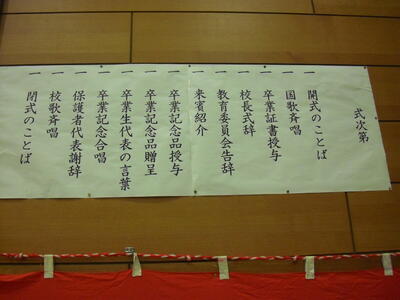 式次第
一 開式のことば
一 国歌斉唱
一 卒業証書授与
一 校長式辞
一 教育委員会告辞
一 来賓紹介
一 卒業記念品授与
一 卒業記念品贈呈
一 卒業生代表の言葉
一 卒業記念合唱
一 保護者代表謝辞
一 校歌斉唱
一 閉式のことば